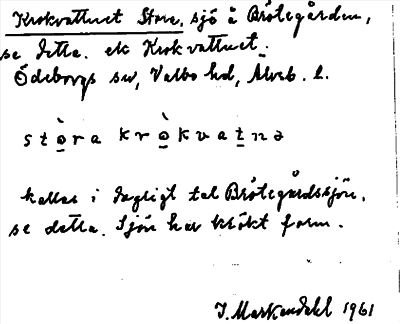 Krokvattnet Stora, sjö å Brötegården,
se detta. ek Krokvattnet.
Ödeborgs sn, Valbo hd, Älvsb. l.
stò̱ra krò̱kvaṯnə
kallas i dagligt tal Brötegårdssjön,
se detta. Sjön har krökt form.
J. Markendahl 1961